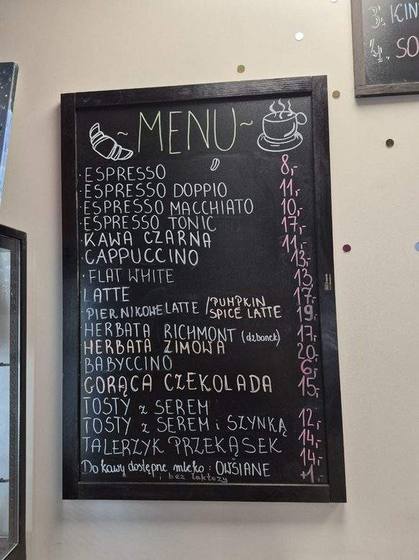 ~MENU~
ESPRESSO 8,-
ESPRESSO DOPPIO 11,-
ESPRESSO MACCHIATO 10,-
ESPRESSO TONIC 17,-
KAWA CZARNA 11,-
CAPPUCCINO 13,-
FLAT WHITE 13,-
LATTE 17,-
PIERNIKOWE LATTE / PUMPKIN SPICE LATTE 19,-
HERBATA RICHMONT (dzbanek) 17,-
HERBATA ZIMOWA 20,-
BABYCCINO 6,-
GORĄCA CZEKOLADA 15,-
TOSTY z SEREM 12,-
TOSTY z SEREM i SZYNKĄ 14,-
TALERZYK PRZEKĄSEK 14,-
Do kawy dostępne mleko: OWSIANE +1,-
i bez laktozy